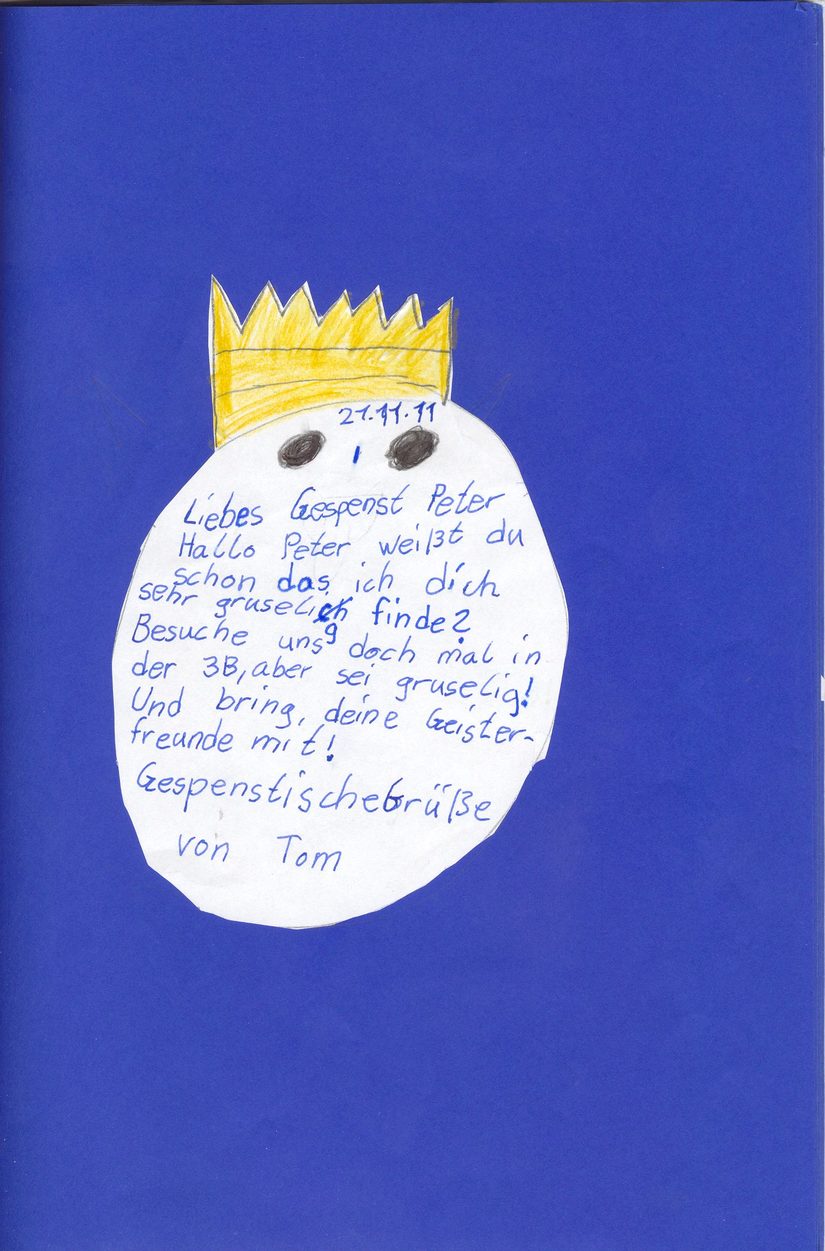 21.11.11
Liebes Gespenst Peter
Hallo Peter weißt du
schon das ich dich
sehr gruselig finde?
Besuche uns doch mal in
der 3B, aber sei gruselig!
Und bring, deine Geister-
freunde mit!
Gespenstische Grüße
von Tom